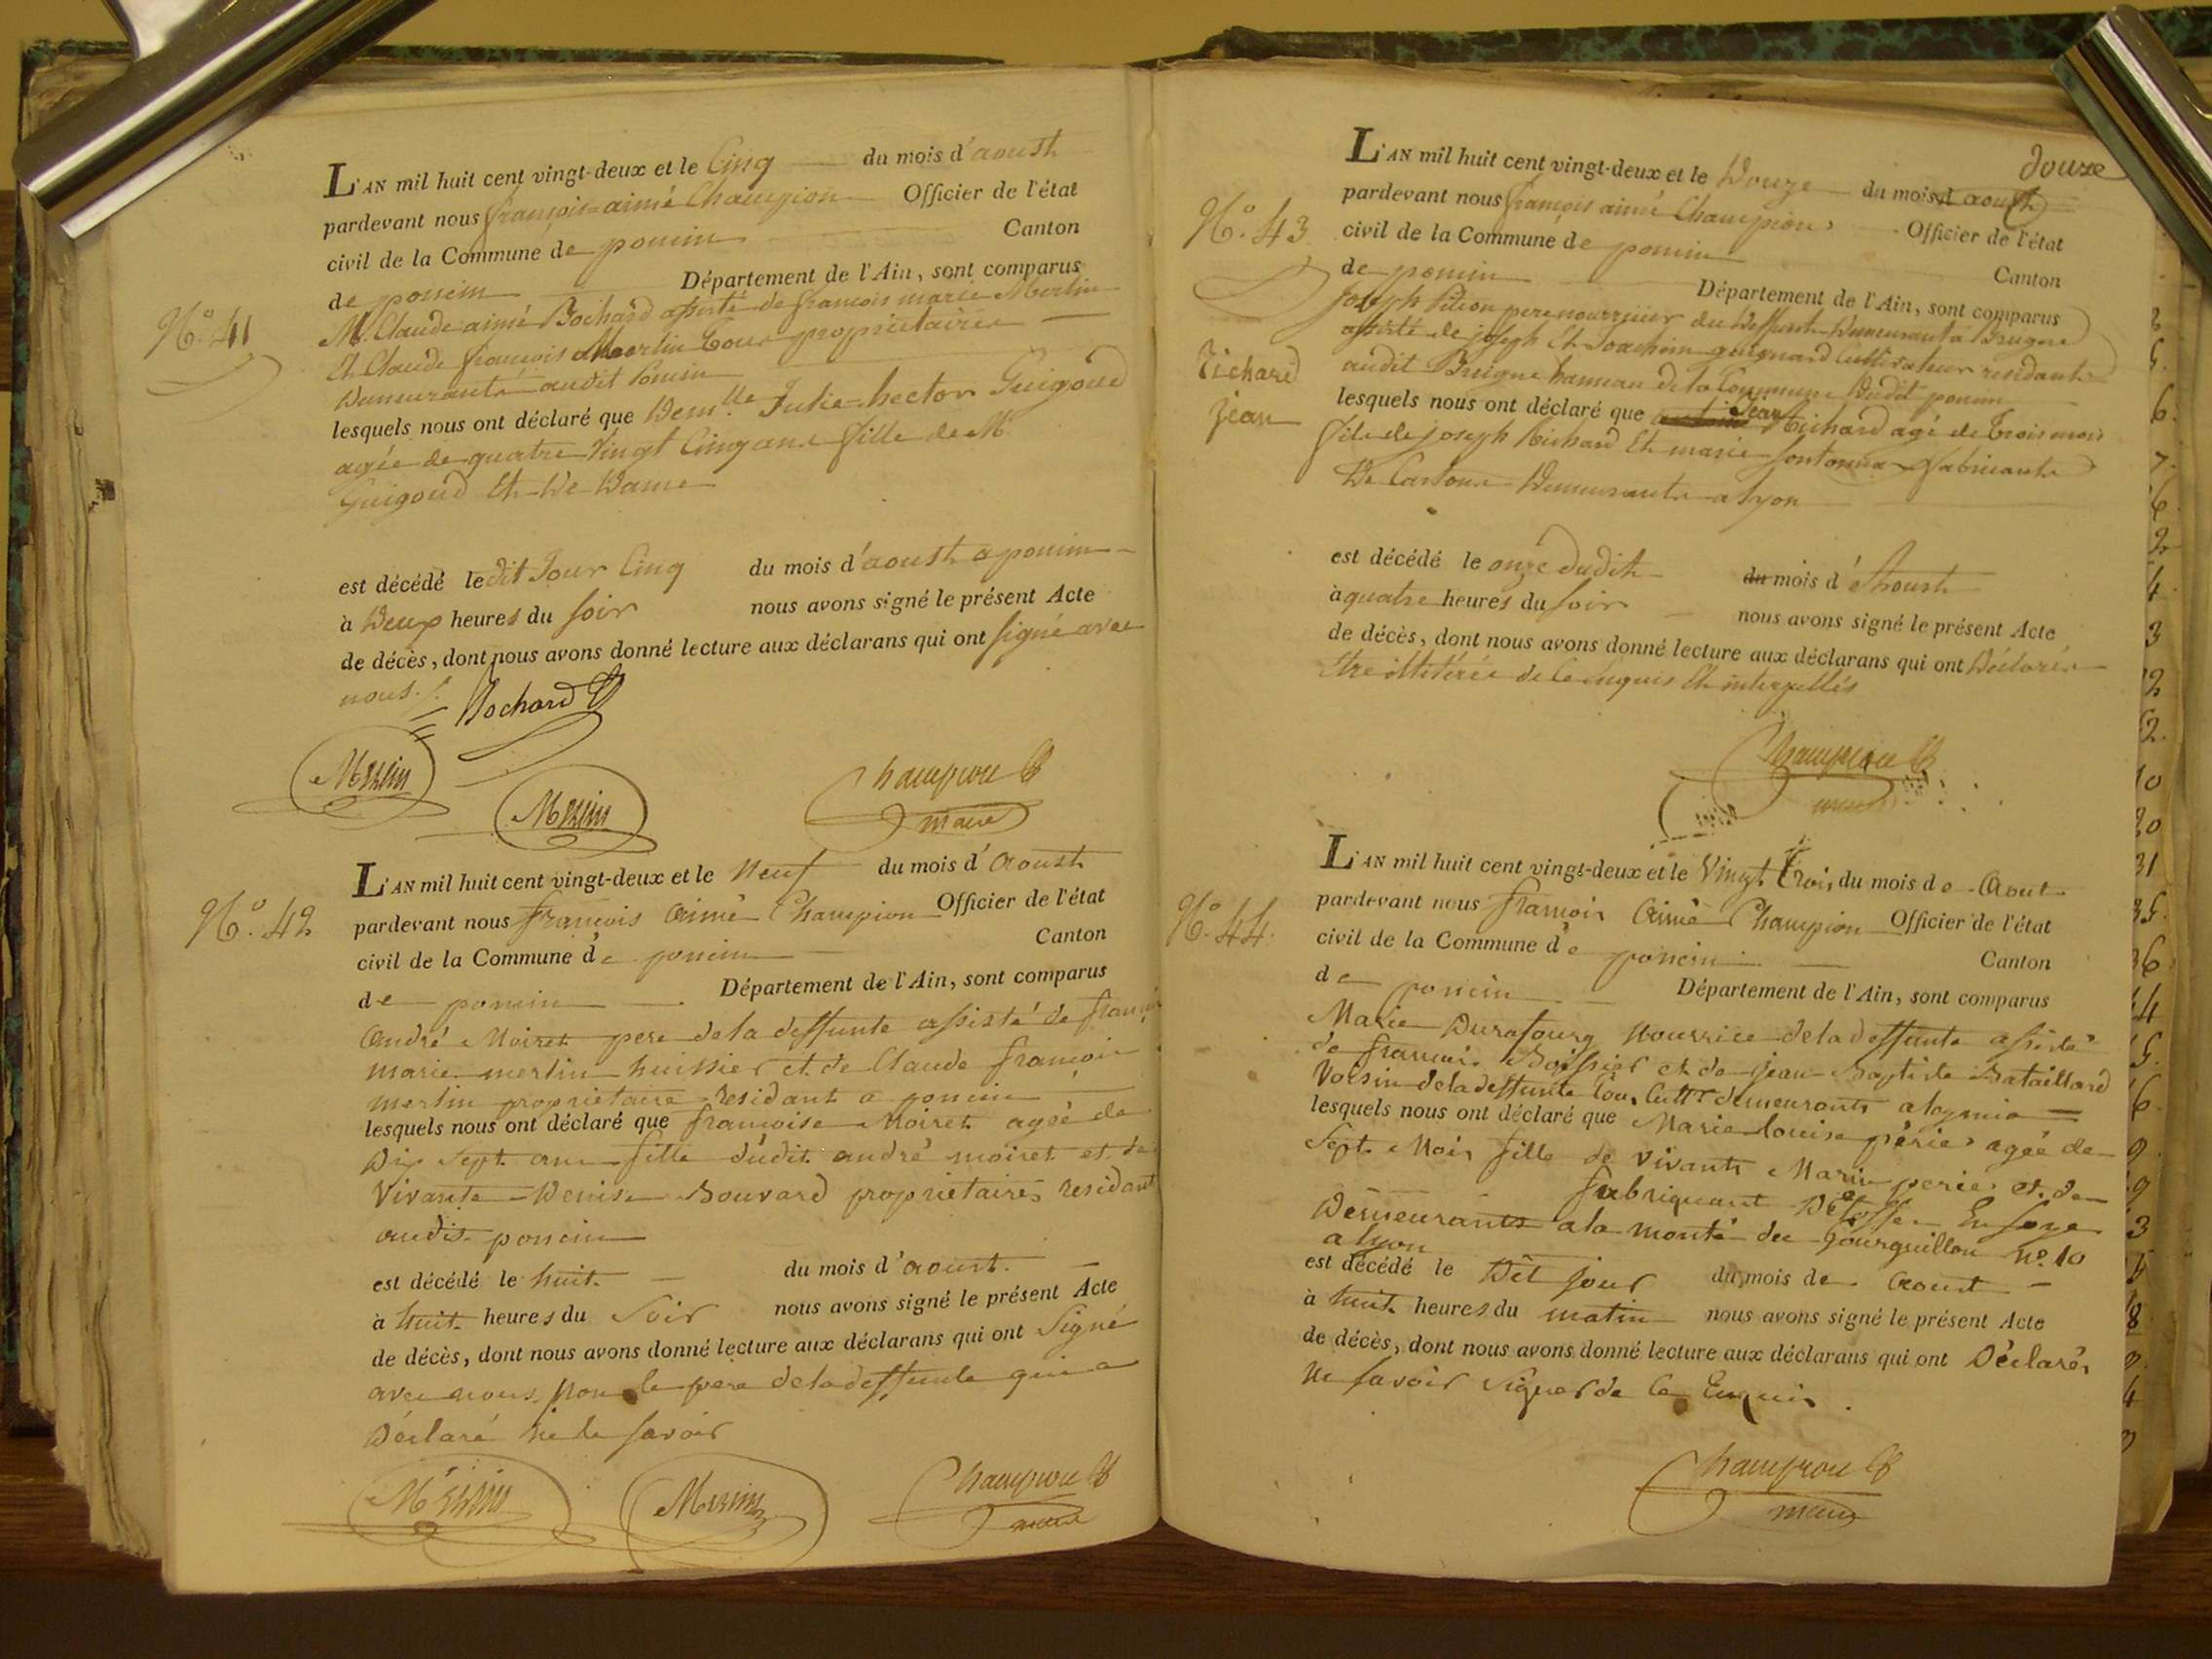 L'AN mil huit cent vingt-deux et le Cinq du mois d'aoust
pardevant nous françois-aimé Champion Officier de l'état
civil de la Commune de poncin Canton
de poncin Département de l'Ain, sont comparus
N.º 41
M. Claude aimé Bochard assisté de francois marie Merlin
Et Claude françois Merlin Tous propriétaires
Demeurants audit Poncin
lesquels nous ont déclaré que Dem.lle Julie-hector Guigoud
agée de quatre Vingt Cinq ans fille de M
Guigoud Et De Dame
est décédé ledit Jour Cinq du mois d'aoust a poncin
à Deux heures du soir nous avons signé le présent Acte
de décès, dont nous avons donné lecture aux déclarans qui ont signé avec
nous./.
Bochard
Merlin
Merlin
Champion
maire
L'AN mil huit cent vingt-deux et le Neuf du mois d'aoust
N.º 42
pardevant nous françois Aimé Champion Officier de l'état
civil de la Commune de poncin Canton
de poncin Département de l'Ain, sont comparus
André Moiret pere de la deffunte assisté de françois
marie merlin huissier et de Claude françois
merlin propriétaire residant a poncin
lesquels nous ont déclaré que francoise Moiret agéé de
Dix Sept ans fille dudit andré moiret et de
Vivante Denise Bouvard propriétaires residant
audit poncin
est décédé le huit du mois d'aoust
à huit heures du Soir nous avons signé le présent Acte
de décès, dont nous avons donné lecture aux déclarans qui ont Signé
avec nous, non le pere de la deffunte qui a
Déclaré ne le savoir
Merlin
Merlin
Champion
maire
L'AN mil huit cent vingt-deux et le Douze du mois d'aoust
douze
N.º 43
pardevant nous françois aimé Champion Officier de l'état
civil de la Commune de poncin Canton
de poncin Département de l'Ain, sont comparus
Joseph Pition pere nourricier du Deffunt Demeurant a Brugne
assisté de joseph Et Joachim guignard Cultivateur residants
Richard
jean
audit Bruigne hameau de la Commune Dudit poncin
lesquels nous ont déclaré que Jean Richard agé de Trois mois
fils de joseph Richard Et marie fabricants
De Cartons Demeurants a lyon
est décédé le onze dudit du mois d'Aoust
à quatre heures du soir nous avons signé le présent Acte
de décès, dont nous avons donné lecture aux déclarans qui ont Déclarés
Etre illitérés de Ce Enquis Et interpellés
Champion
maire
L'AN mil huit cent vingt-deux et le Vingt Trois du mois de Aout
N.º 44
pardevant nous françois Aimé Champion Officier de l'état
civil de la Commune de poncin Canton
de poncin Département de l'Ain, sont comparus
Marie Durafourg Nourrice de la deffunte assistée
de francois Boissier et de jean Baptiste Bataillard
Voisin de la deffunte Tous Cultr demeurants a
lesquels nous ont déclaré que Marie louise périer agéé de
Sept Mois fille de vivants Marin perier et de
fabriquant D'Etoffes En soye
Demeurants a la monté du Gourguillon Nº. 10
a lyon
est décédé le Dit jour du mois de Aout
à huit heures du matin nous avons signé le présent Acte
de décès, dont nous avons donné lecture aux déclarans qui ont Déclarés
Ne savoir Signer de Ce Enquis.
Champion
maire